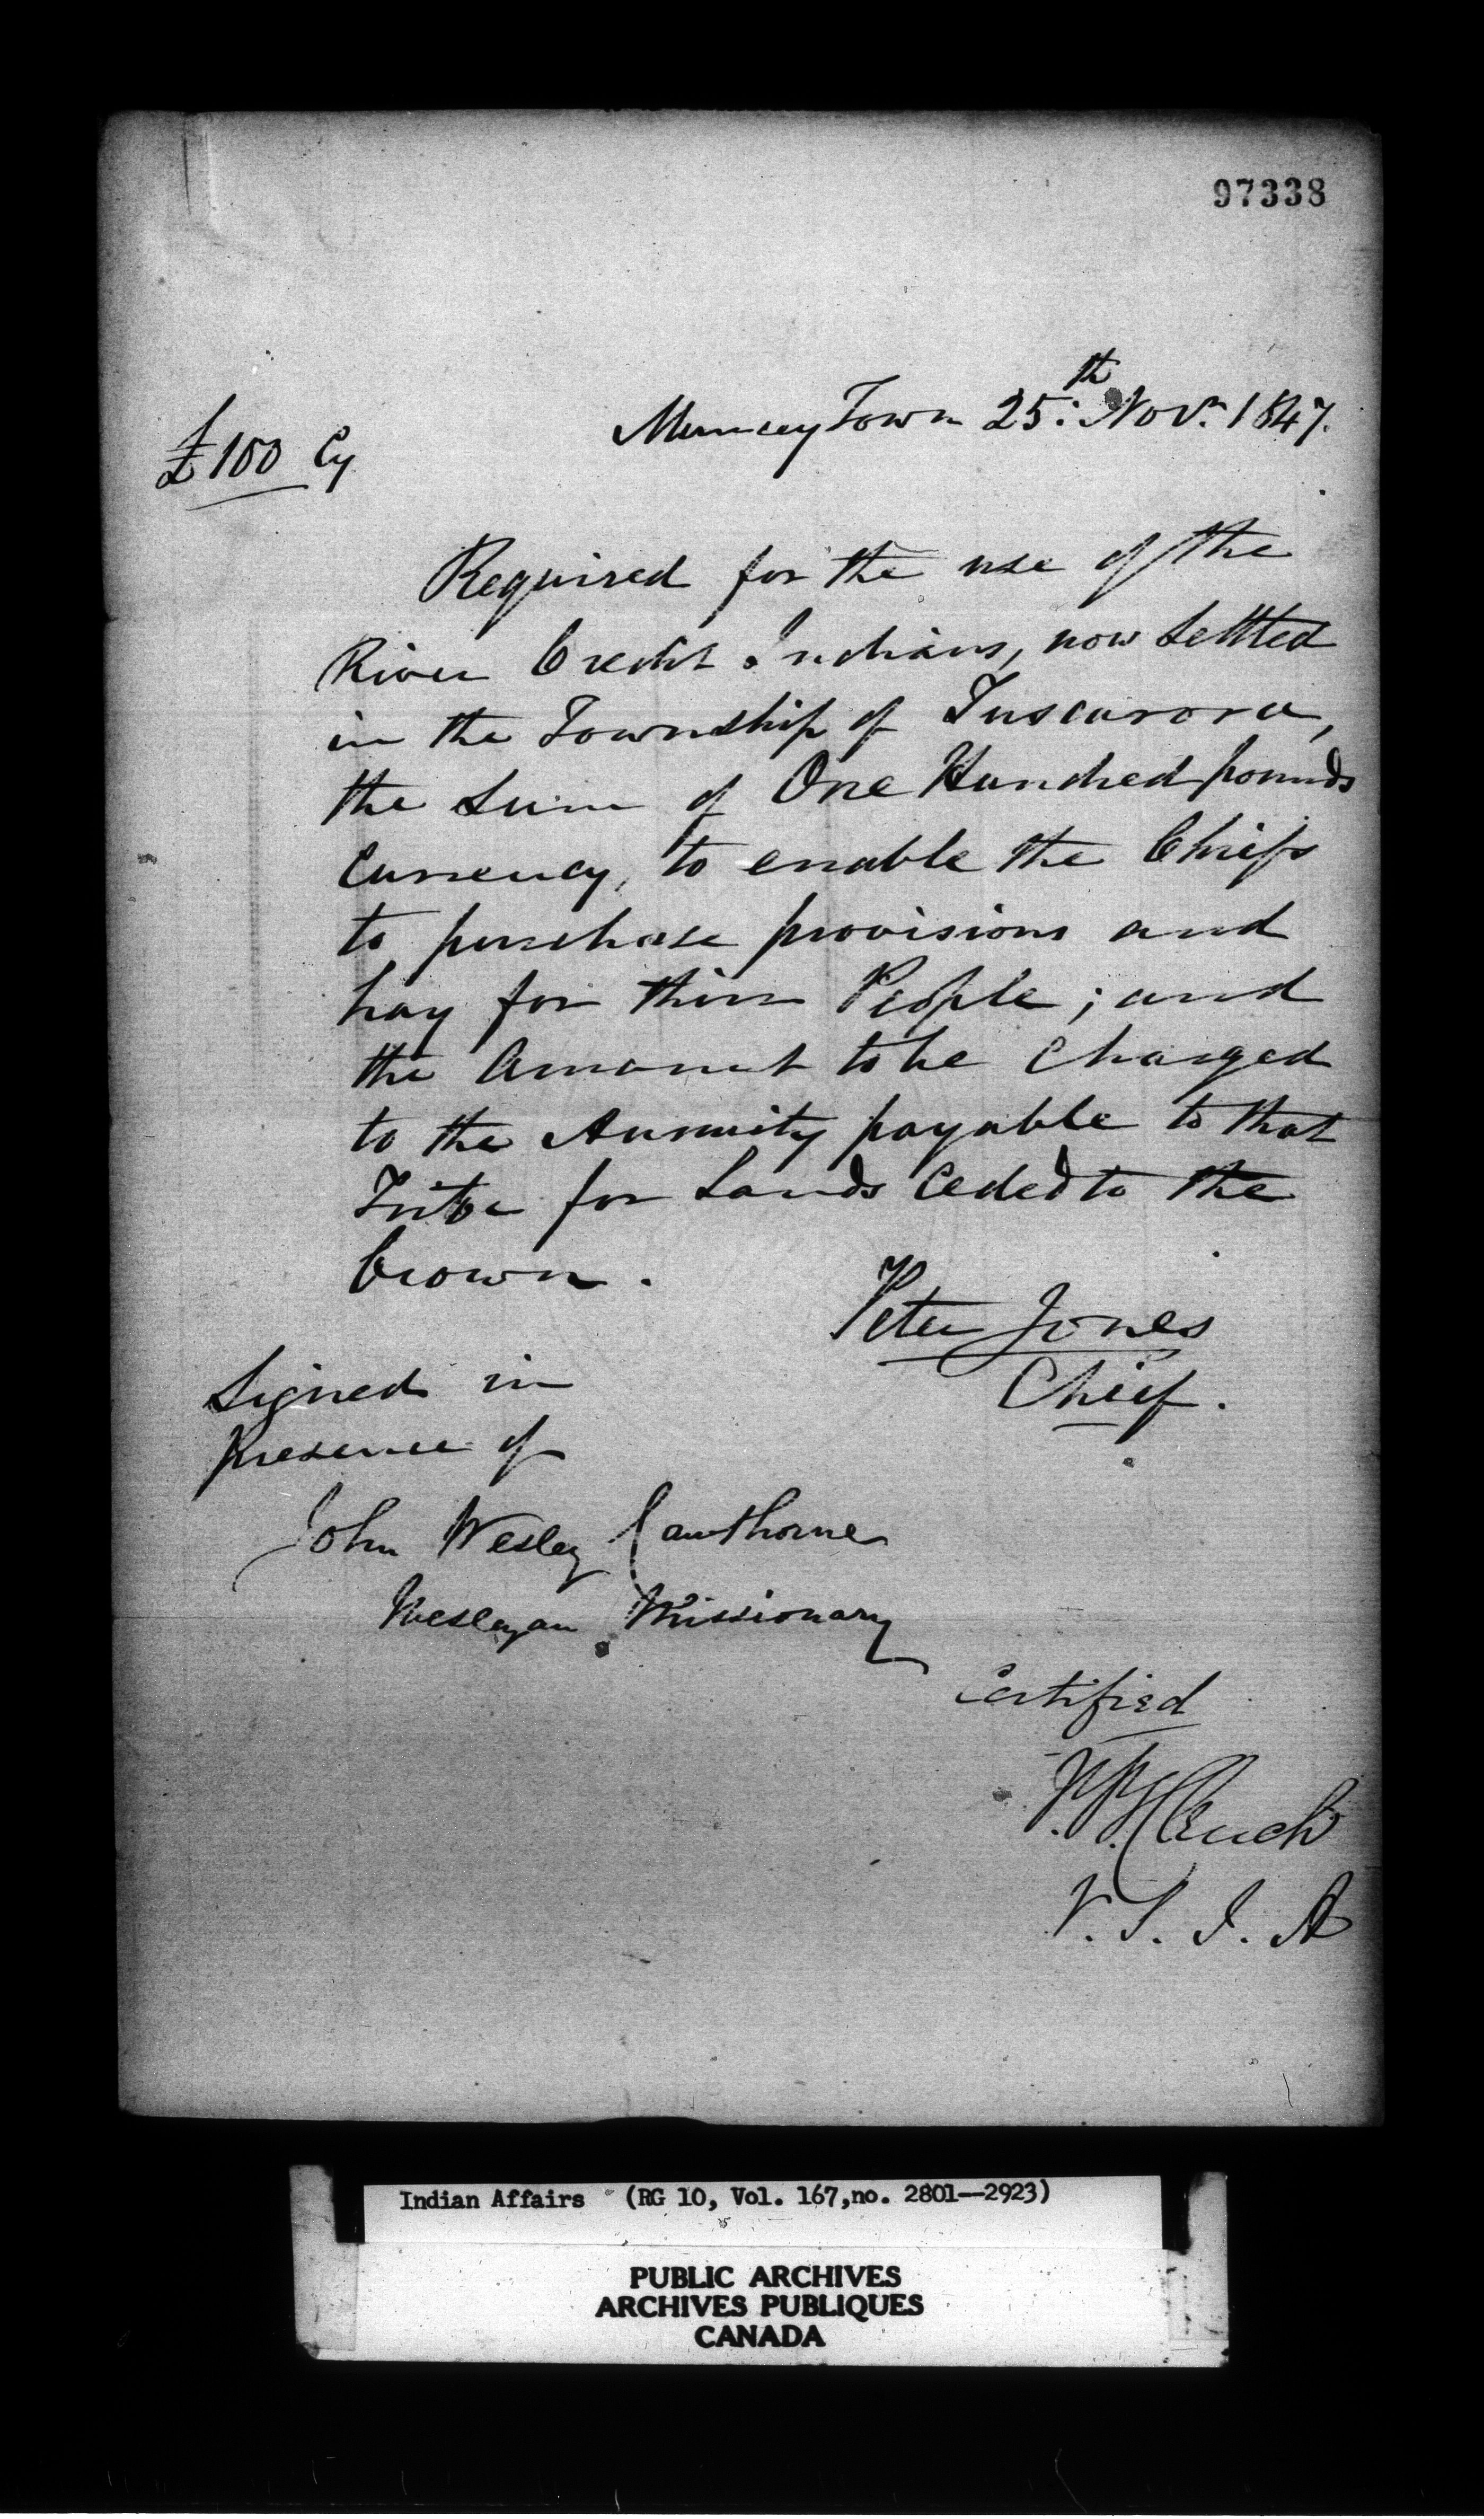 97338
Munceytown 25th. Novr. 1847.
£100 Cy
Required for the use of the
River Credit Indians, now Settled
in the Township of Tuscarora,
the Sum of One Hundred pounds
Currency, to enable the Chiefs
to purchase provisions and
hay for their People; and
the Amount to be Charged
to the Annuity payable to that
Tribe for Lands Ceded to the
Crown.
Peter Jones
Chief.
Signed in
presence of
John Wesley Cawthorne
Wesleyan Missionary
Certified
Clench
S. I. A
Indian Affairs (RG 10, Vol. 167,no. 2801--2923)
PUBLIC ARCHIVES
ARCHIVES PUBLIQUES
CANADA